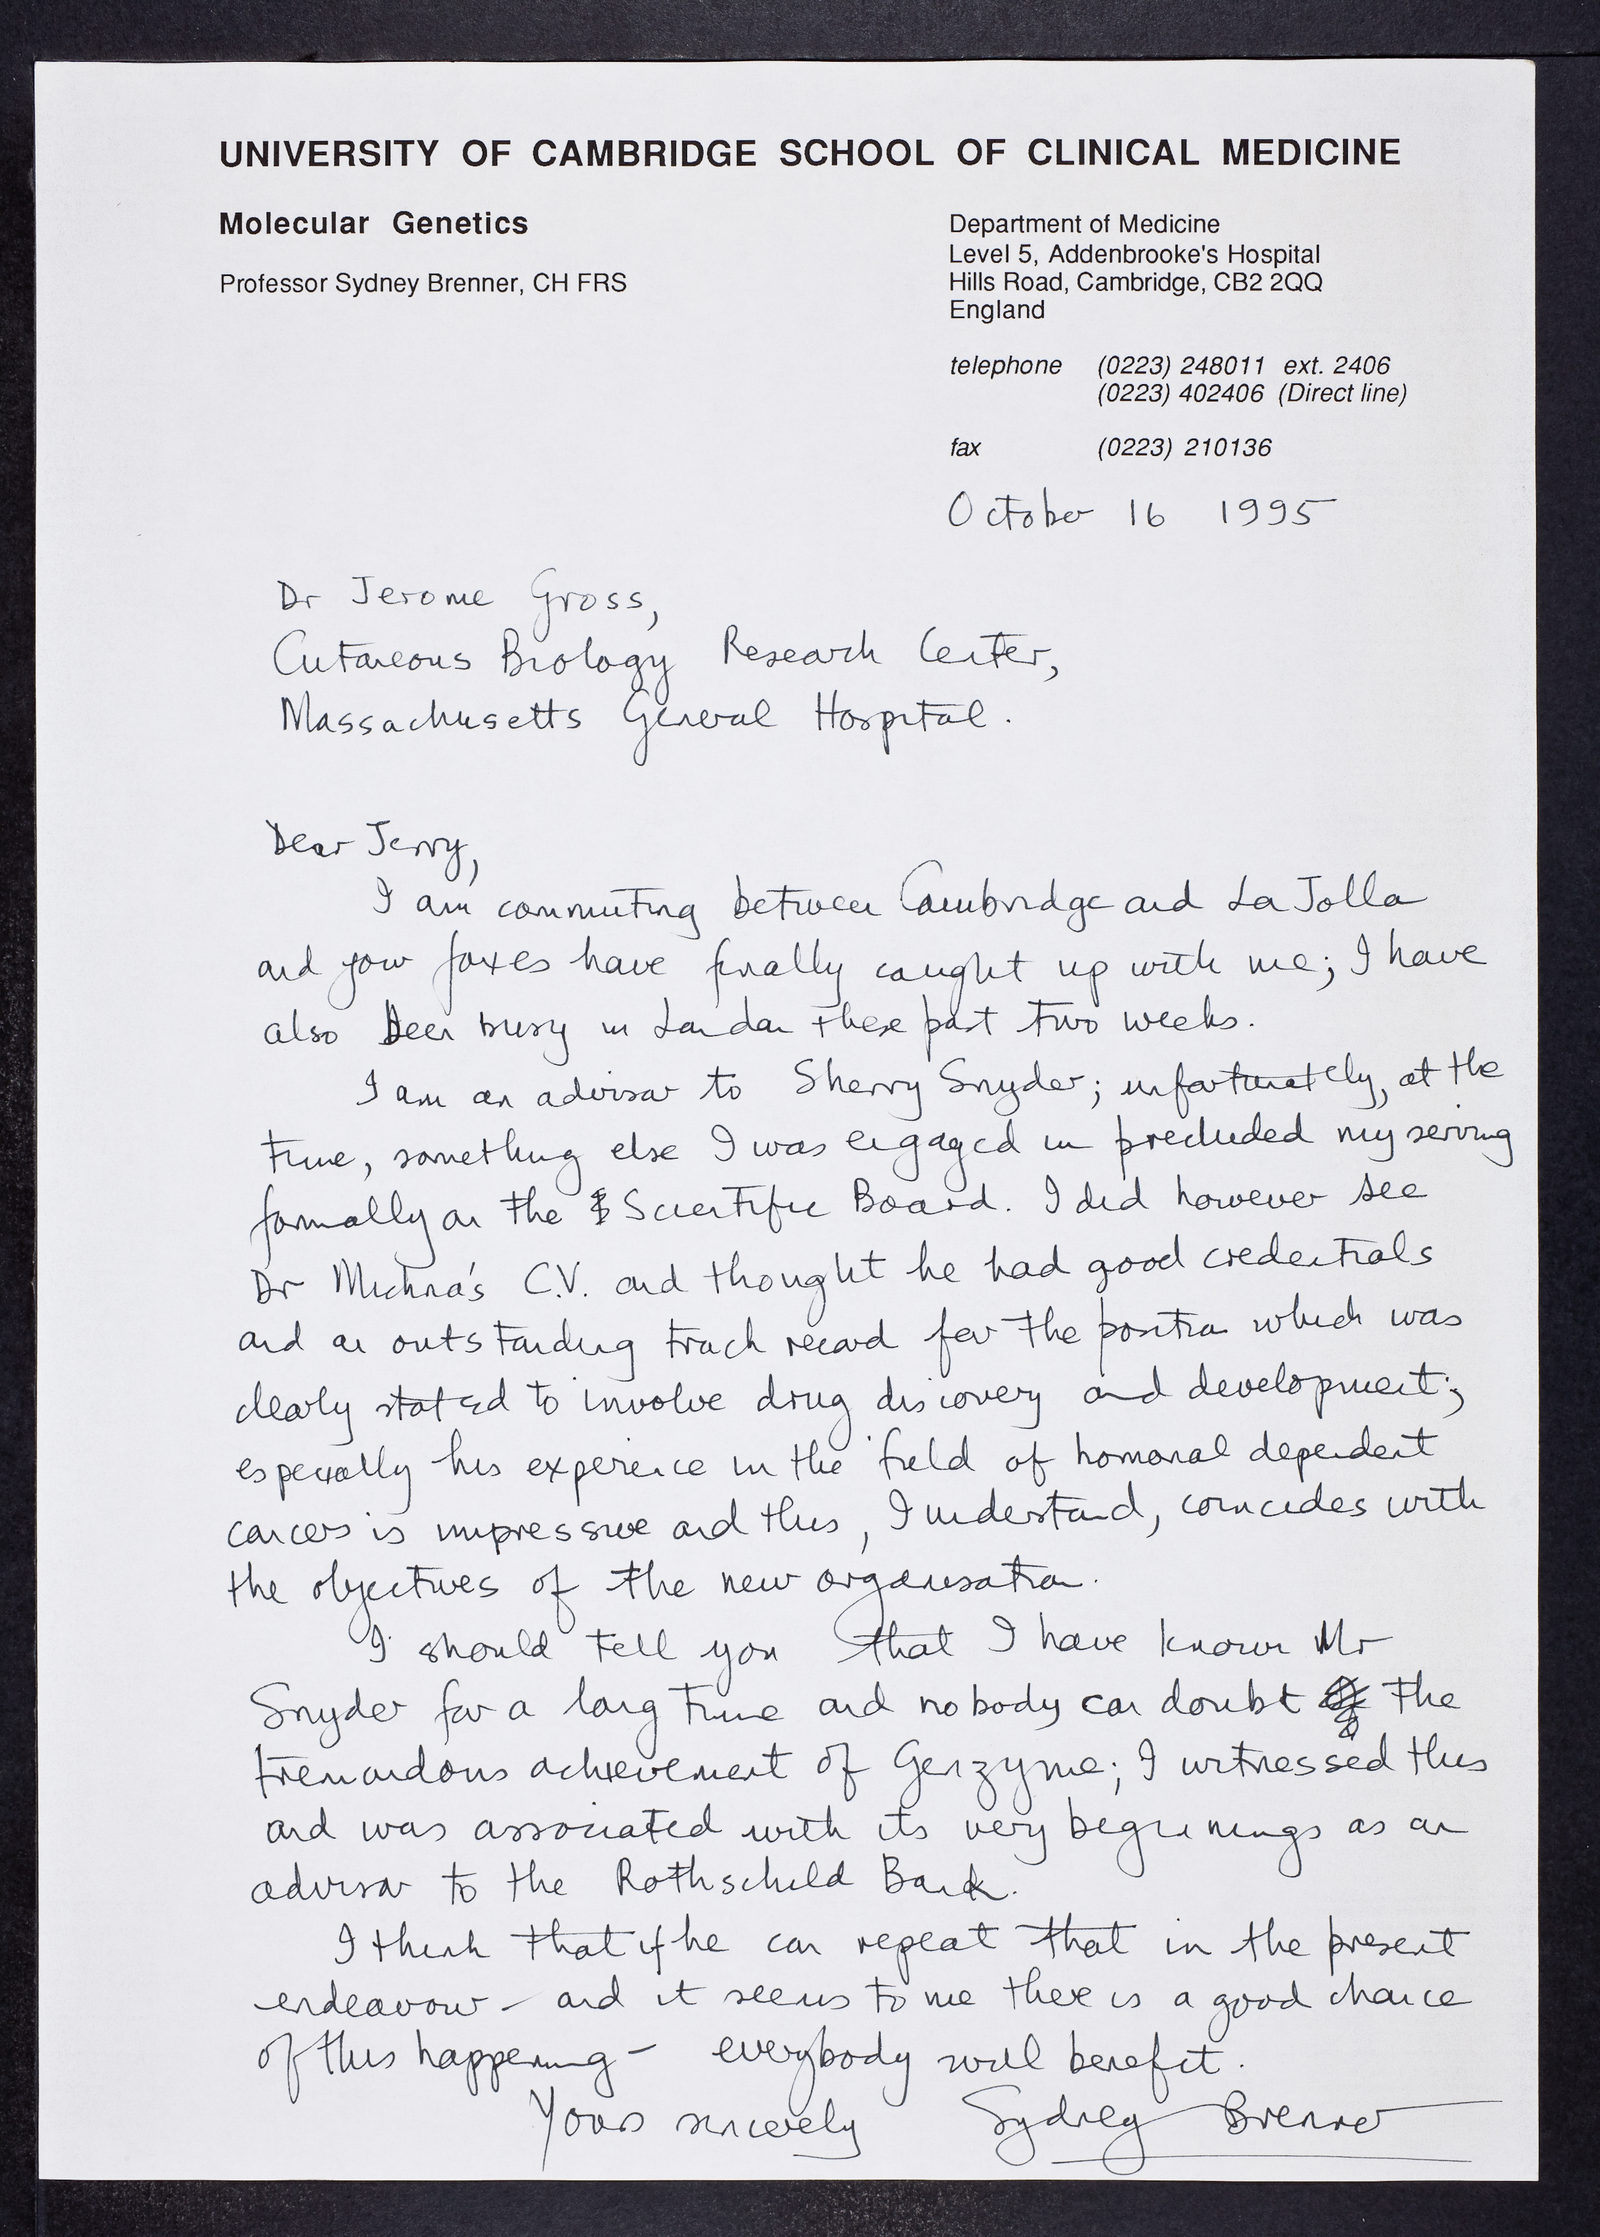 UNIVERSITY OF CAMBRIDGE SCHOOL OF CLINICAL MEDICINE
Molecular Genetics
Professor Sydney Brenner, CH FRS
Department of Medicine
Level 5, Addenbrooke's Hospital
Hills Road, Cambridge, CB2 2QQ
England
telephone (0223) 248011 ext. 2406
(0223) 402406 (Direct line)
fax (0223) 210136
October 16 1995
Dr Jerome Gross,
Cutaneous Biology Research Center,
Massachusetts General Hospital.
Dear Jerry,
I am commuting between Cambridge and La Jolla
and your faxes have finally caught up with me; I have
also been busy in London these past two weeks.
I am an advisor to Sherry Snyder; unfortunately, at the
time, something else I was engaged in precluded my serving
formally on the Scientific Board. I did however see
Dr Michna's C.V. and thought he had good credentials
and an outstanding track record for the position which was
clearly stated to involve drug discovery and development;
especially his experience in the field of hormonal dependent
cancers is impressive and this, I understand, coincides with
the objectives of the new organisation.
I should tell you that I have known Mr
Snyder for a long time and nobody can doubt the
tremendous achievement of Genzyme; I witnessed this
and was associated with its very beginnings as an
advisor to the Rothschild Bank.
I think that if he can repeat that in the present
endeavour - and it seems to me there is a good chance
of this happening - everybody will benefit.
Yours sincerely Sydney Brenner